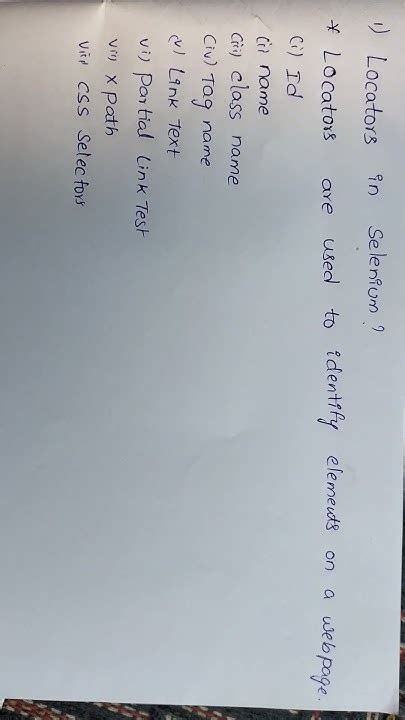 1) Locators in Selenium?
* Locators are used to identify elements on a webpage.
(i) Id
(ii) name
(iii) class name
(iv) Tag name
(v) Link Text
vi) Partial Link Test
vii) X path
viii) CSS Selectors